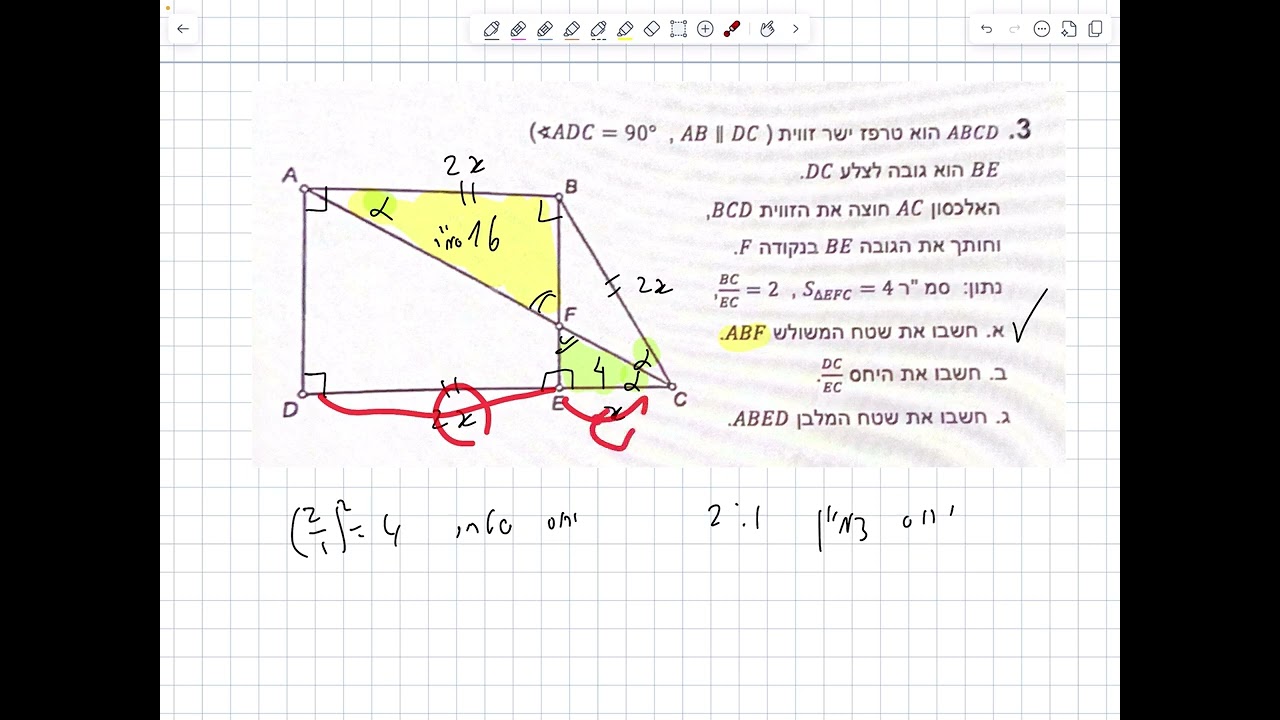 3. ABCD הוא טרפז ישר זווית ( AB ∥ DC , ∢ADC = 90°)
BE הוא גובה לצלע DC.
האלכסון AC חוצה את הזווית BCD,
וחותך את הגובה BE בנקודה F.
נתון: סמ"ר 4 = S△EFC , BC/EC = 2,
א. חשבו את שטח המשולש ABF.
ב. חשבו את היחס DC/EC.
ג. חשבו את שטח המלבן ABED.
2x
A
B
α
16 סמ"ר
2x
F
4
α
α
D
E
C
2x
x
יחס דמיון 2:1
יחס שטחים (2/1)² = 4